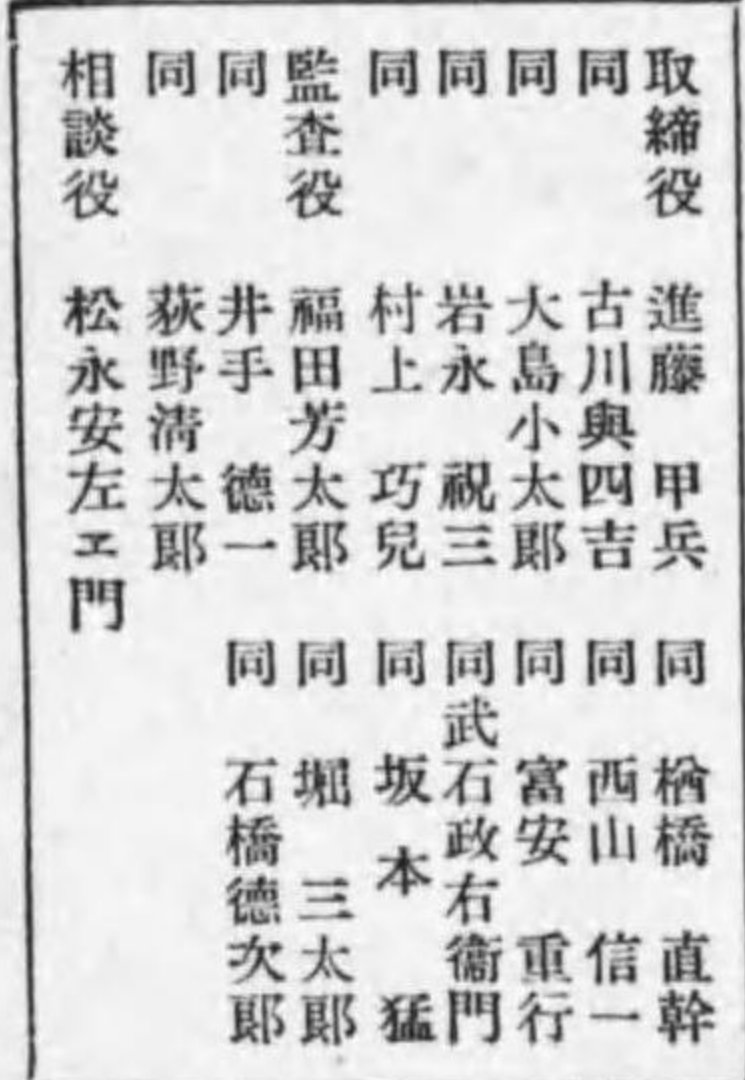 取締役 進藤 甲兵 同 楢橋 直幹
同 古川與四吉 同 西山 信一
同 大島小太郎 同 富安 重行
同 岩永 祝三 同 武石政右衞門
同 村上 巧兒 同 坂本 猛
監査役 福田芳太郎 同 堀 三太郎
同 井手 德一 同 石橋德次郎
同 荻野淸太郎
相談役 松永安左ヱ門